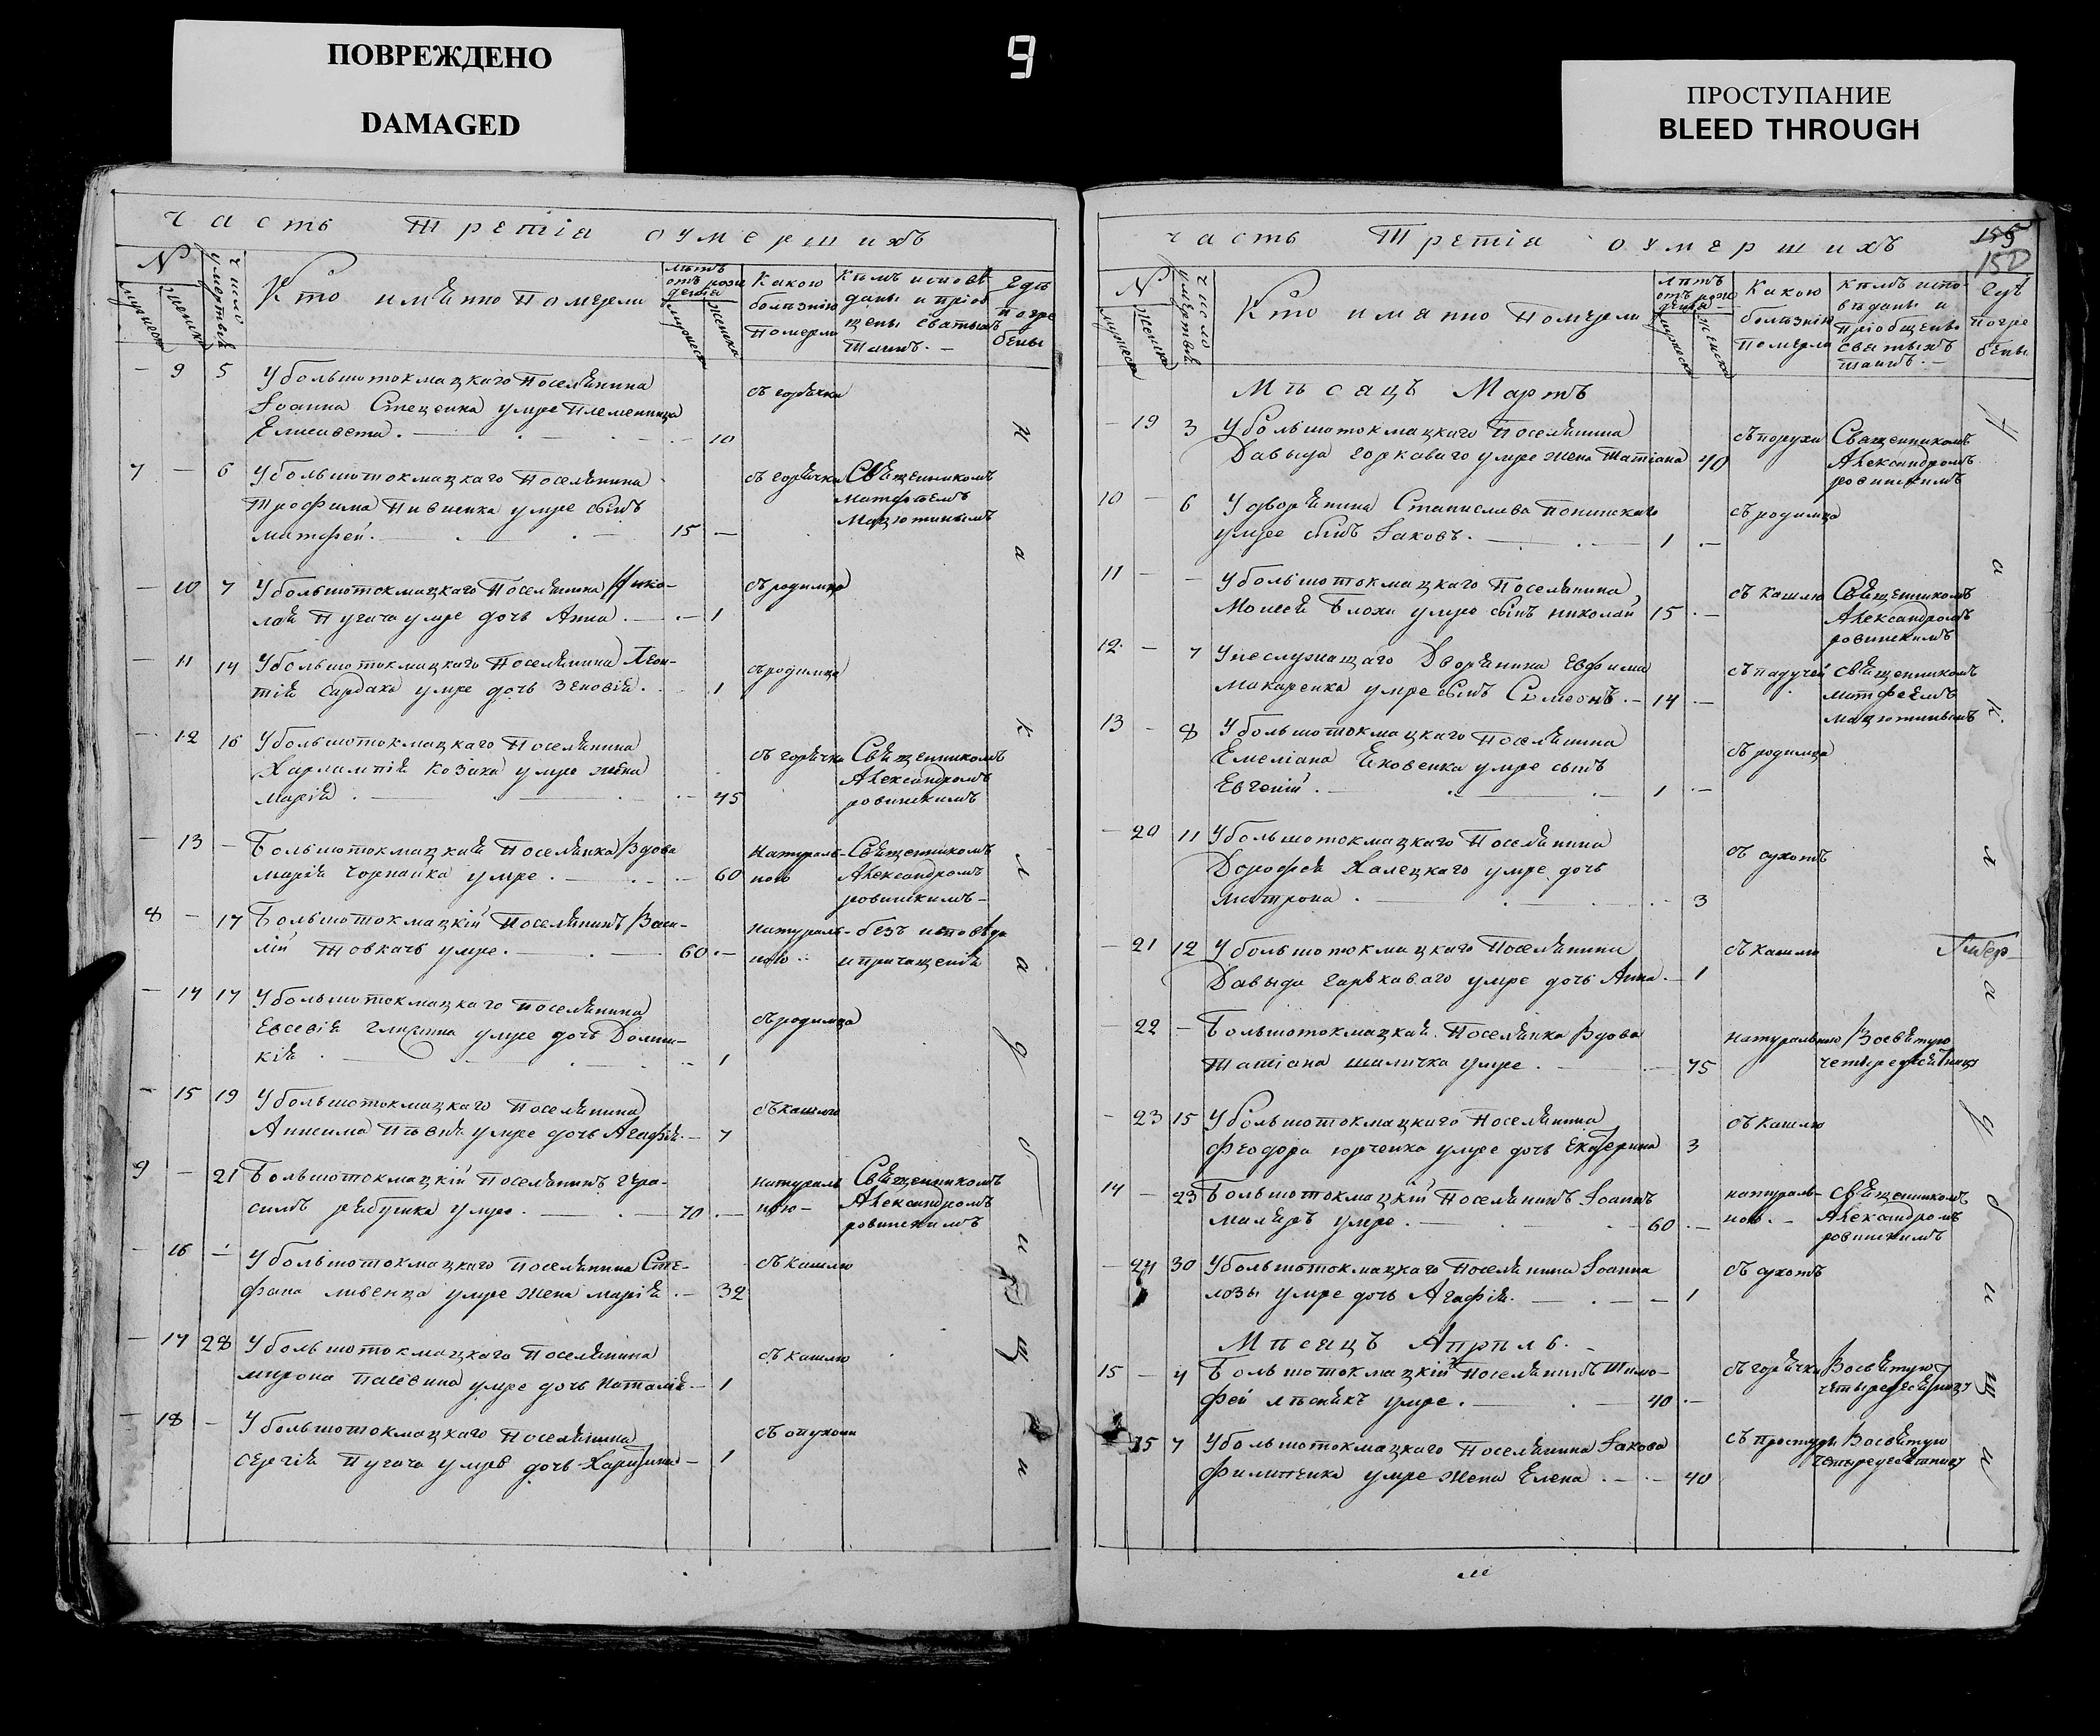 ПОВРЕЖДЕНО
DAMAGED
9
ПРОСТУПАНИЕ
BLEED THROUGH
Часть Третіа оумершихъ
№ мужеска женска
число умертвія
Кто имѣнно Померли
лѣтъ отъ рожденіа
мужеска женска
Какою болѣзнію Померли
Кѣмъ исповѣданы и пріобщены сватыхъ Таинъ. —
Гдѣ погребены
— 9 5 У большотокмацкаго Поселянина
Іоанна Стеценка умре Племеница
Елисавета. — 10 съ горячки
7 — 6 У большотокмацкаго Поселянина
Трофима Пивненка умре сынъ
матфей. — 15 — съ горячки Священникомъ
матфѣемъ
Мацютинымъ
— 10 7 У большотокмацкаго Поселянина Нико-
лая Пугача умре дочь Анна. — 1 съ родимца
— 11 14 У большотокмацкаго Поселянина Леон-
тія Сардака умре дочь Зеновія. 1 съ родимца
— 12 16 У большотокмацкаго Поселянина
Харлампія Козака умре жена
Марія. — 45 съ горячки Священникомъ
Александромъ
ровинскимъ
— 13 — Большотокмацкая Поселянка Вдова
Марія Чорнайка умре. — 60 Натураль-
ною Священникомъ
Александромъ
ровинскимъ —
8 — 17 Большотокмацкій Поселянинъ Васи-
лій Товкачъ умре. — 60 — натураль-
ною безъ исповѣда
и причащенія
— 14 17 У большотокмацкаго Поселянина
Евсевія умре дочь Домни-
кія. — 1 съ родимца
— 15 19 У большотокмацкаго Поселянина
Анисима Пѣвня умре дочь Агафія. — 7 съ кашлю
9 — 21 Большотокмацкій Поселянинъ Гера-
симъ рябушка умре. — 70 — натураль
ною — Священникомъ
Александромъ
ровинскимъ
— 16 — У большотокмацкаго Поселянина Сте-
фана ливенца умре жена марія. — 32 съ кашлю
— 17 28 У большотокмацкаго Поселянина
мирона умре дочь Наталія — 1 съ кашлю
— 18 — У большотокмацкаго Поселянина
сергія Пугача умре дочь Харитина — 1 съ опухоли
На кладбищи
155
150
Часть Третіа оумершихъ
№ мужеска женска
число умертвія
Кто имянно Померли
лѣтъ отъ рожденіа
мужеска женска
Какою болѣзнію Померли
Кѣмъ исповѣданы и Пріобщены сватыхъ таинъ. —
Гдѣ Погребены
Мѣсяцъ Мартъ
— 19 3 У большотокмацкаго Поселянина
Давыда Горкаваго умре жена Татіана 40 Священникомъ
Александромъ
ровинскимъ
10 — 6 У дворянина Станислава Понинскаго
умре сынъ Іаковъ. — 1 — съ родимца
11 — — У большотокмацкаго Поселянина
Моисея Блохи умре сынъ николай 15 — съ кашлю Священникомъ
Александромъ
ровинскимъ
12 — 7 У неслужащаго Дворянина Евфима
Макаренка умре сынъ Симеонъ. — 14 — съ падучей священникомъ
матфеемъ
мацютинымъ
13 — 8 У большотокмацкаго Поселянина
Емеліана Яковенка умре сынъ
Евгеній. — 1 — съ родимца
— 20 11 У большотокмацкаго Поселянина
Дорофея Халецкаго умре дочь
Матрона. — 3 съ сухотъ
— 21 12 У большотокмацкаго Поселянина
Давыда гарькаваго умре дочь Анна. — 1 съ кашлю
22 — Большотокмацкая Поселянка Вдова
Татіана шиличка умре. — 75 натуральною Восвятую
четыредесятницу
— 23 15 У большотокмацкаго Поселянина
Феодора юрченка умре дочь Екатерина 3 съ кашлю
14 — 23 Большотокмацкій Поселянинъ Іоаннъ
маляръ умре. — 60 — натураль-
ною. — священникомъ
Александромъ
ровинскимъ
— 24 30 У большотокмацкаго Поселянина Іоанна
лозы умре дочь Агафія. — 1 съ сухотъ
Мѣсяцъ Апрѣль. —
15 — 4 Большотокмацкій Поселянинъ Тимо-
фей лѣсникъ умре. — 40 — съ горячки Восвятую
четыредесятницу
— 25 7 У большотокмацкаго Поселянина Іакова
Филипенка умре жена Елена. — 40 съ простуды Восвятую
четыредесятницу
На кладбищи